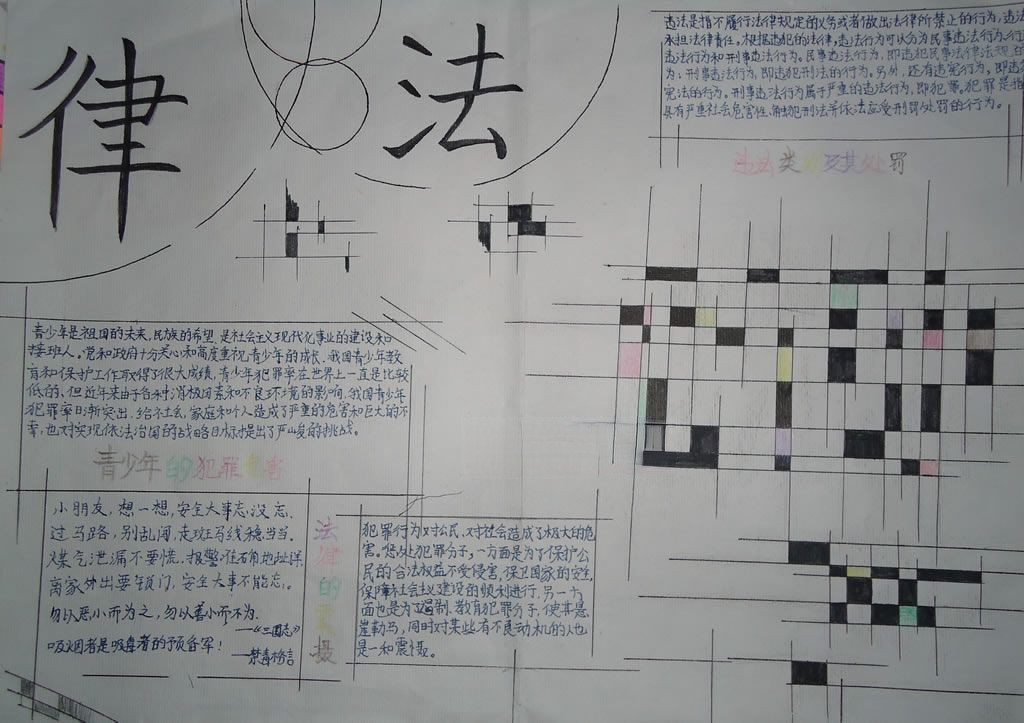 律 法
违法是指不履行法律规定的义务或者做出法律所禁止的行为，违法
承担法律责任。根据违犯的法律，违法行为可以分为民事违法行为、行
违法行为和刑事违法行为。民事违法行为，即违犯民事法律法规的
为；刑事违法行为，即违犯刑法的行为。另外，还有违宪行为，即违
宪法的行为。刑事违法行为属于严重的违法行为，即犯罪。犯罪是指
具有严重社会危害性、触犯刑法并依法应受刑罚处罚的行为。
违法类 及其处罚
青少年是祖国的未来，民族的希望，是社会主义现代化事业的建设和
接班人。党和政府十分关心和高度重视青少年的成长，我国青少年教
育和保护工作取得了很大成绩，青少年犯罪率在世界上一直是比较
低的，但近年来由于各种消极因素和不良环境的影响，我国青少年
犯罪率日渐突出，给社会，家庭和个人造成了严重的危害和巨大的不
幸，也对实现依法治国的战略目标提出了严峻的挑战。
青少年的犯罪危害
小朋友，想一想，安全大事忘没忘，
过马路，别乱闯，走斑马线稳当当。
煤气泄漏不要慌，报警准确地址详
离家外出要锁门，安全大事不能忘。
勿以恶小而为之，勿以善小而不为。
——《三国志》
吸烟者是吸毒者的预备军！
——禁毒格言
法律的 摄
犯罪行为对公民，对社会造成了极大的危
害。惩处犯罪分子，一方面是为了保护公
民的合法权益不受侵害，保卫国家的安全，
保障社会主义建设的顺利进行，另一方
面也是为了遏制、教育犯罪分子，使其悬
崖勒马，同时对某些有不良动机的人也
是一种震慑。